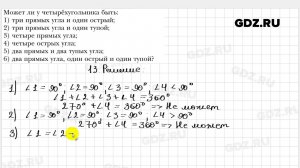 GDZ.RU
Может ли у четырёхугольника быть:
1) три прямых угла и один острый;
2) три прямых угла и один тупой;
3) четыре прямых угла;
4) четыре острых угла;
5) два прямых и два тупых угла;
6) два прямых угла, один острый и один тупой?
13. Решение
1) ∠1 = 90°, ∠2 = 90°, ∠3 = 90°, ∠4 < 90°
∠1 + ∠2 + ∠3 + ∠4 = 360°
270° + ∠4 = 360° => Не может
2) ∠1 = 90°, ∠2 = 90°, ∠3 = 90°, ∠4 > 90°
270° + ∠4 = 360° => Не может
3) ∠1 = ∠2 =
GDZ.RU